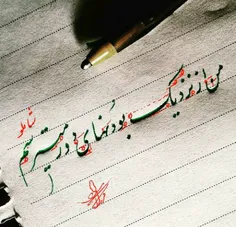 من از نزدیک بودن‌های دور میترسم
شاملو